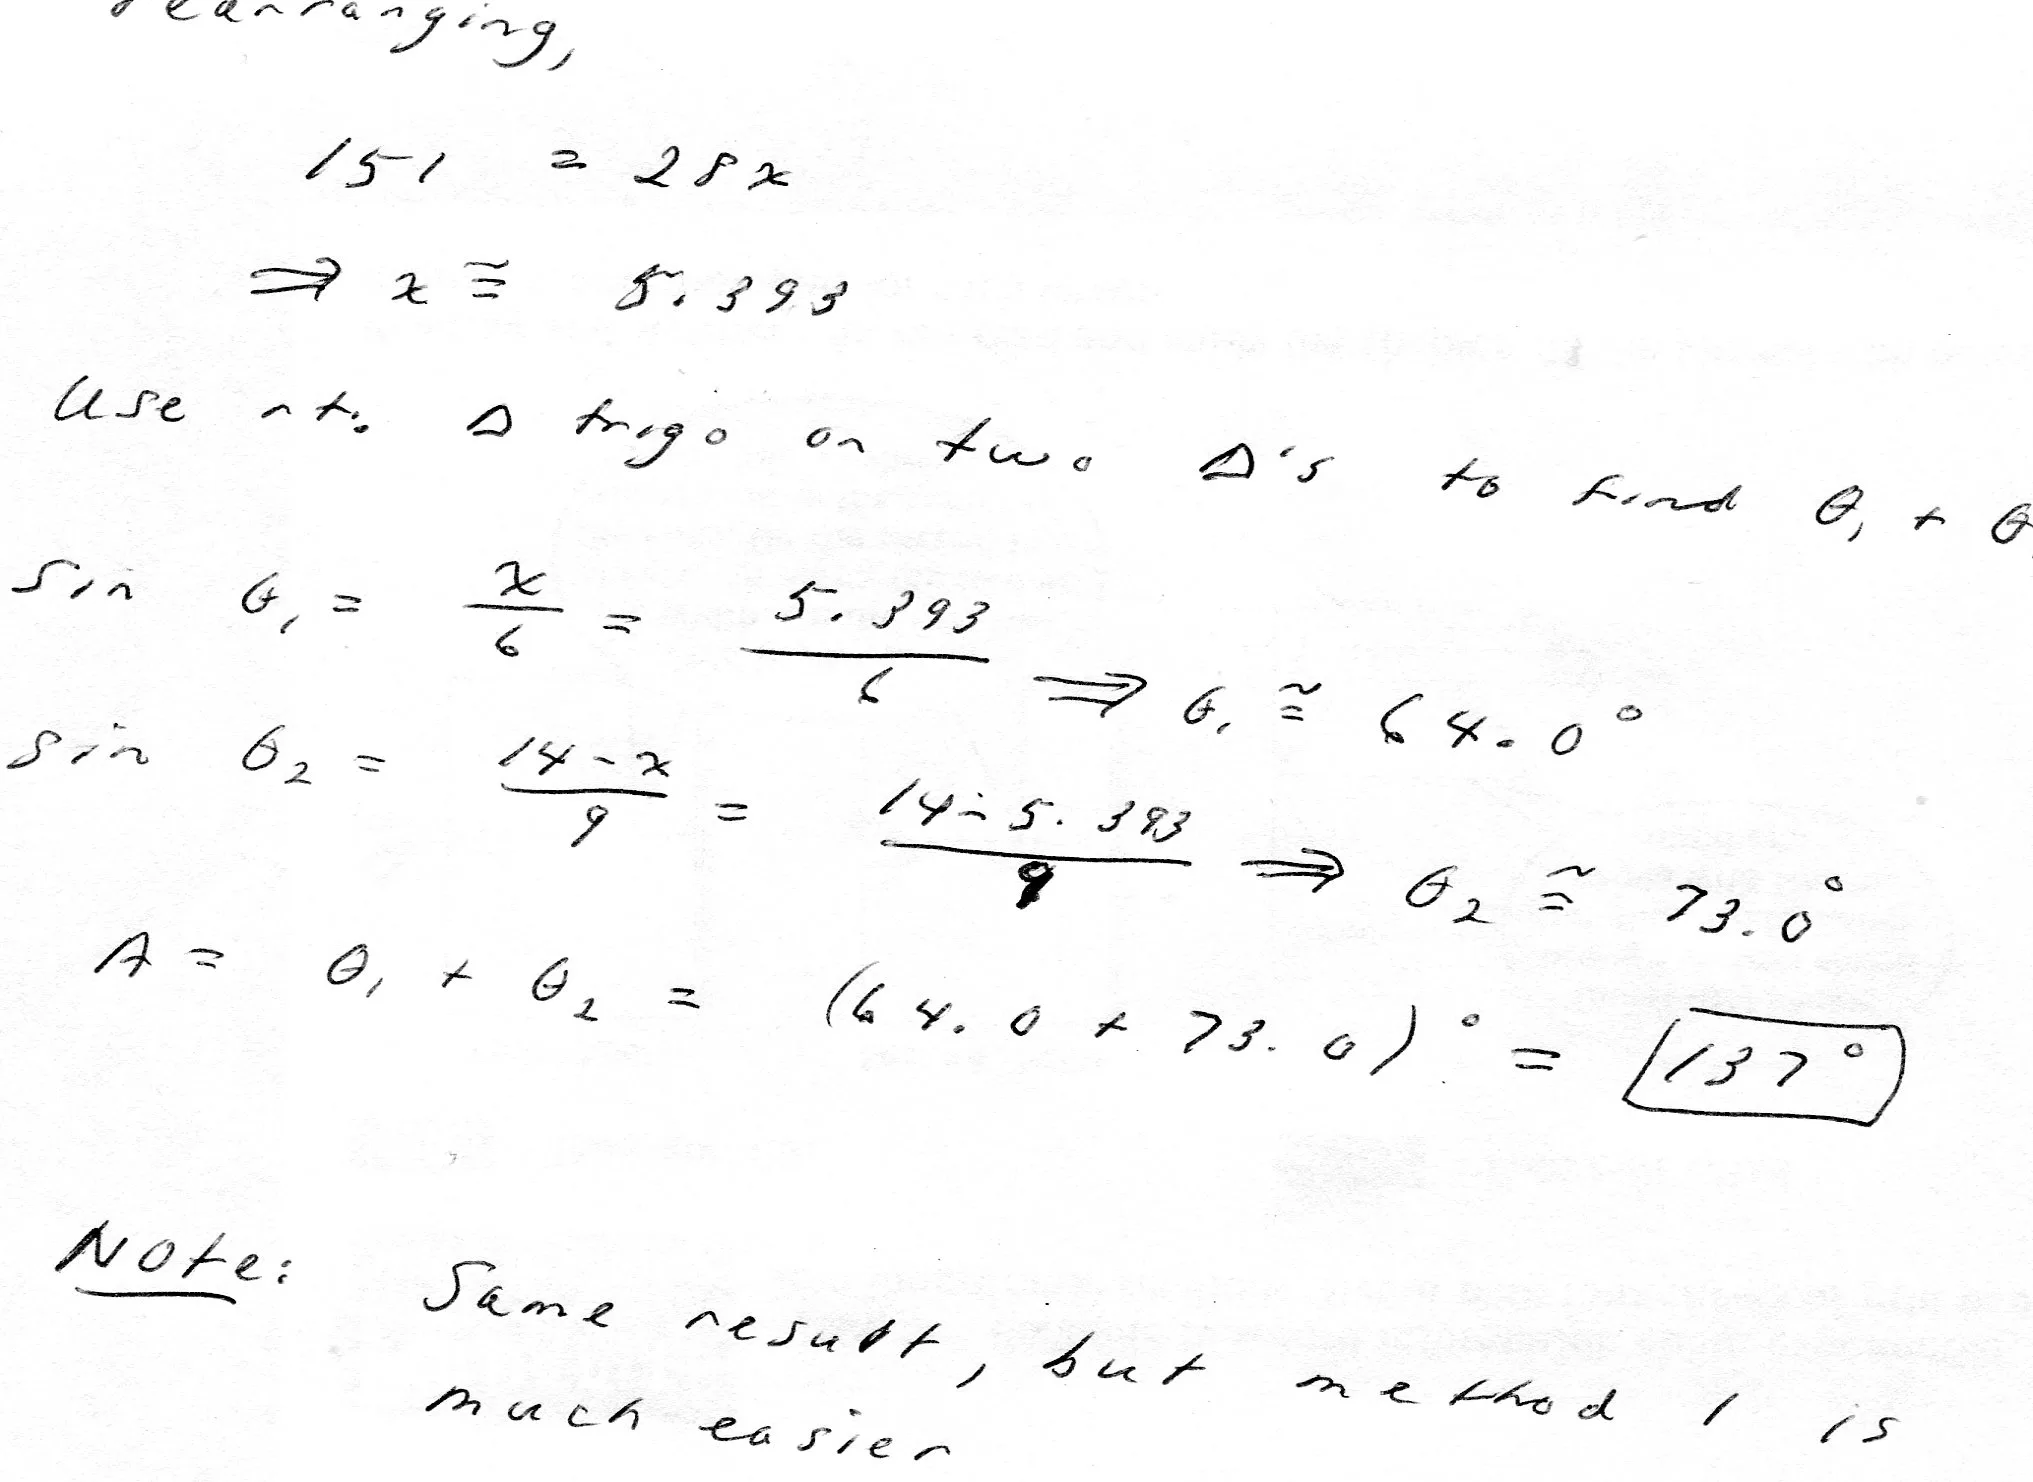 rearranging,
151 = 28x
⇒ x ≅ 5.393
Use rt. Δ trigo on two Δ's to find θ₁ + θ
sin θ₁ = x/6 = 5.393/6 ⇒ θ₁ ≅ 64.0°
sin θ₂ = (14-x)/9 = (14-5.393)/9 ⇒ θ₂ ≅ 73.0°
A = θ₁ + θ₂ = (64.0 + 73.0)° = 137°
Note: Same result, but method 1 is
much easier